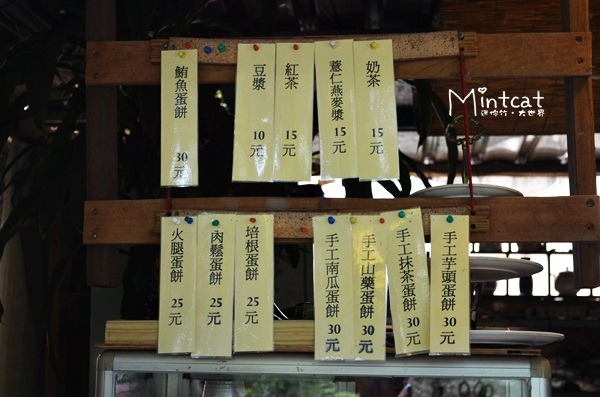 鮪魚蛋餅 30元
豆漿 10元
紅茶 15元
薏仁燕麥漿 15元
奶茶 15元
Mintcat
迷你竹・大世界
火腿蛋餅 25元
肉鬆蛋餅 25元
培根蛋餅 25元
手工南瓜蛋餅 30元
手工山藥蛋餅 30元
手工抹茶蛋餅 30元
手工芋頭蛋餅 30元